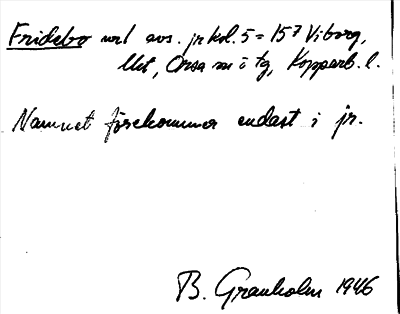 Fridebo urd avs. jrkol. 5 = 15⁷ Viborg,
Uet, Orsa sn i tg, Kopparb. l.
Namnet förekommer endast i jr.
B. Granholm 1946